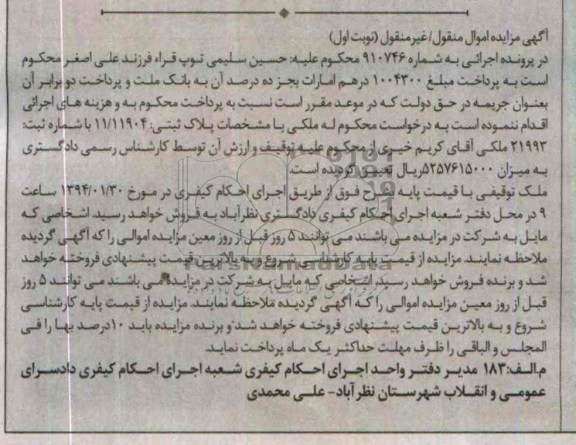 آگهی مزایده اموال منقول/غیر منقول (نوبت اول)
در پرونده اجرائی به شماره ۹۱۰۷۴۶ محکوم علیه: حسین سلیمی توپ قراء فرزند علی اصغر محکوم
است به پرداخت مبلغ ۱۰۰۴۳۰۰ درهم امارات بجز ده درصد آن به بانک ملت و پرداخت دو برابر آن
بعنوان جریمه در حق دولت که در موعد مقرر است نسبت به پرداخت محکوم به و هزینه های اجرائی
اقدام ننموده است به درخواست محکوم له ملکی با مشخصات پلاک ثبتی: ۱۱/۱۱۹۰۴ با شماره ثبت:
۲۱۹۹۳ ملکی آقای کریم خیری از محکوم علیه توقیف و ارزش آن توسط کارشناس رسمی دادگستری
به میزان ۵۲۵۷۶۱۵۰۰۰ریال تعیین گردیده است.
ملک توقیفی با قیمت پایه بشرح فوق از طریق اجرای احکام کیفری در مورخ ۱۳۹۴/۰۱/۳۰ ساعت
۹ در محل دفتر شعبه اجرای احکام کیفری دادگستری نظرآباد به فروش خواهد رسید. اشخاصی که
مایل به شرکت در مزایده می باشند می توانند ۵ روز قبل از روز معین مزایده اموالی را که آگهی گردیده
ملاحظه نمایند. مزایده از قیمت پایه کارشناسی شروع و به بالاترین قیمت پیشنهادی فروخته خواهد
شد و برنده فروش خواهد رسید. اشخاصی که مایل به شرکت در مزایده می باشند می توانند ۵ روز
قبل از روز معین مزایده اموالی را که آگهی گردیده ملاحظه نمایند. مزایده از قیمت پایه کارشناسی
شروع و به بالاترین قیمت پیشنهادی فروخته خواهد شد و برنده مزایده باید ۱۰درصد بها را فی
المجلس و الباقی را ظرف مهلت حداکثر یک ماه پرداخت نماید.
م.الف:۱۸۳ مدیر دفتر واحد اجرای احکام کیفری شعبه اجرای احکام کیفری دادسرای
عمومی و انقلاب شهرستان نظرآباد- علی محمدی
ParsNamadData